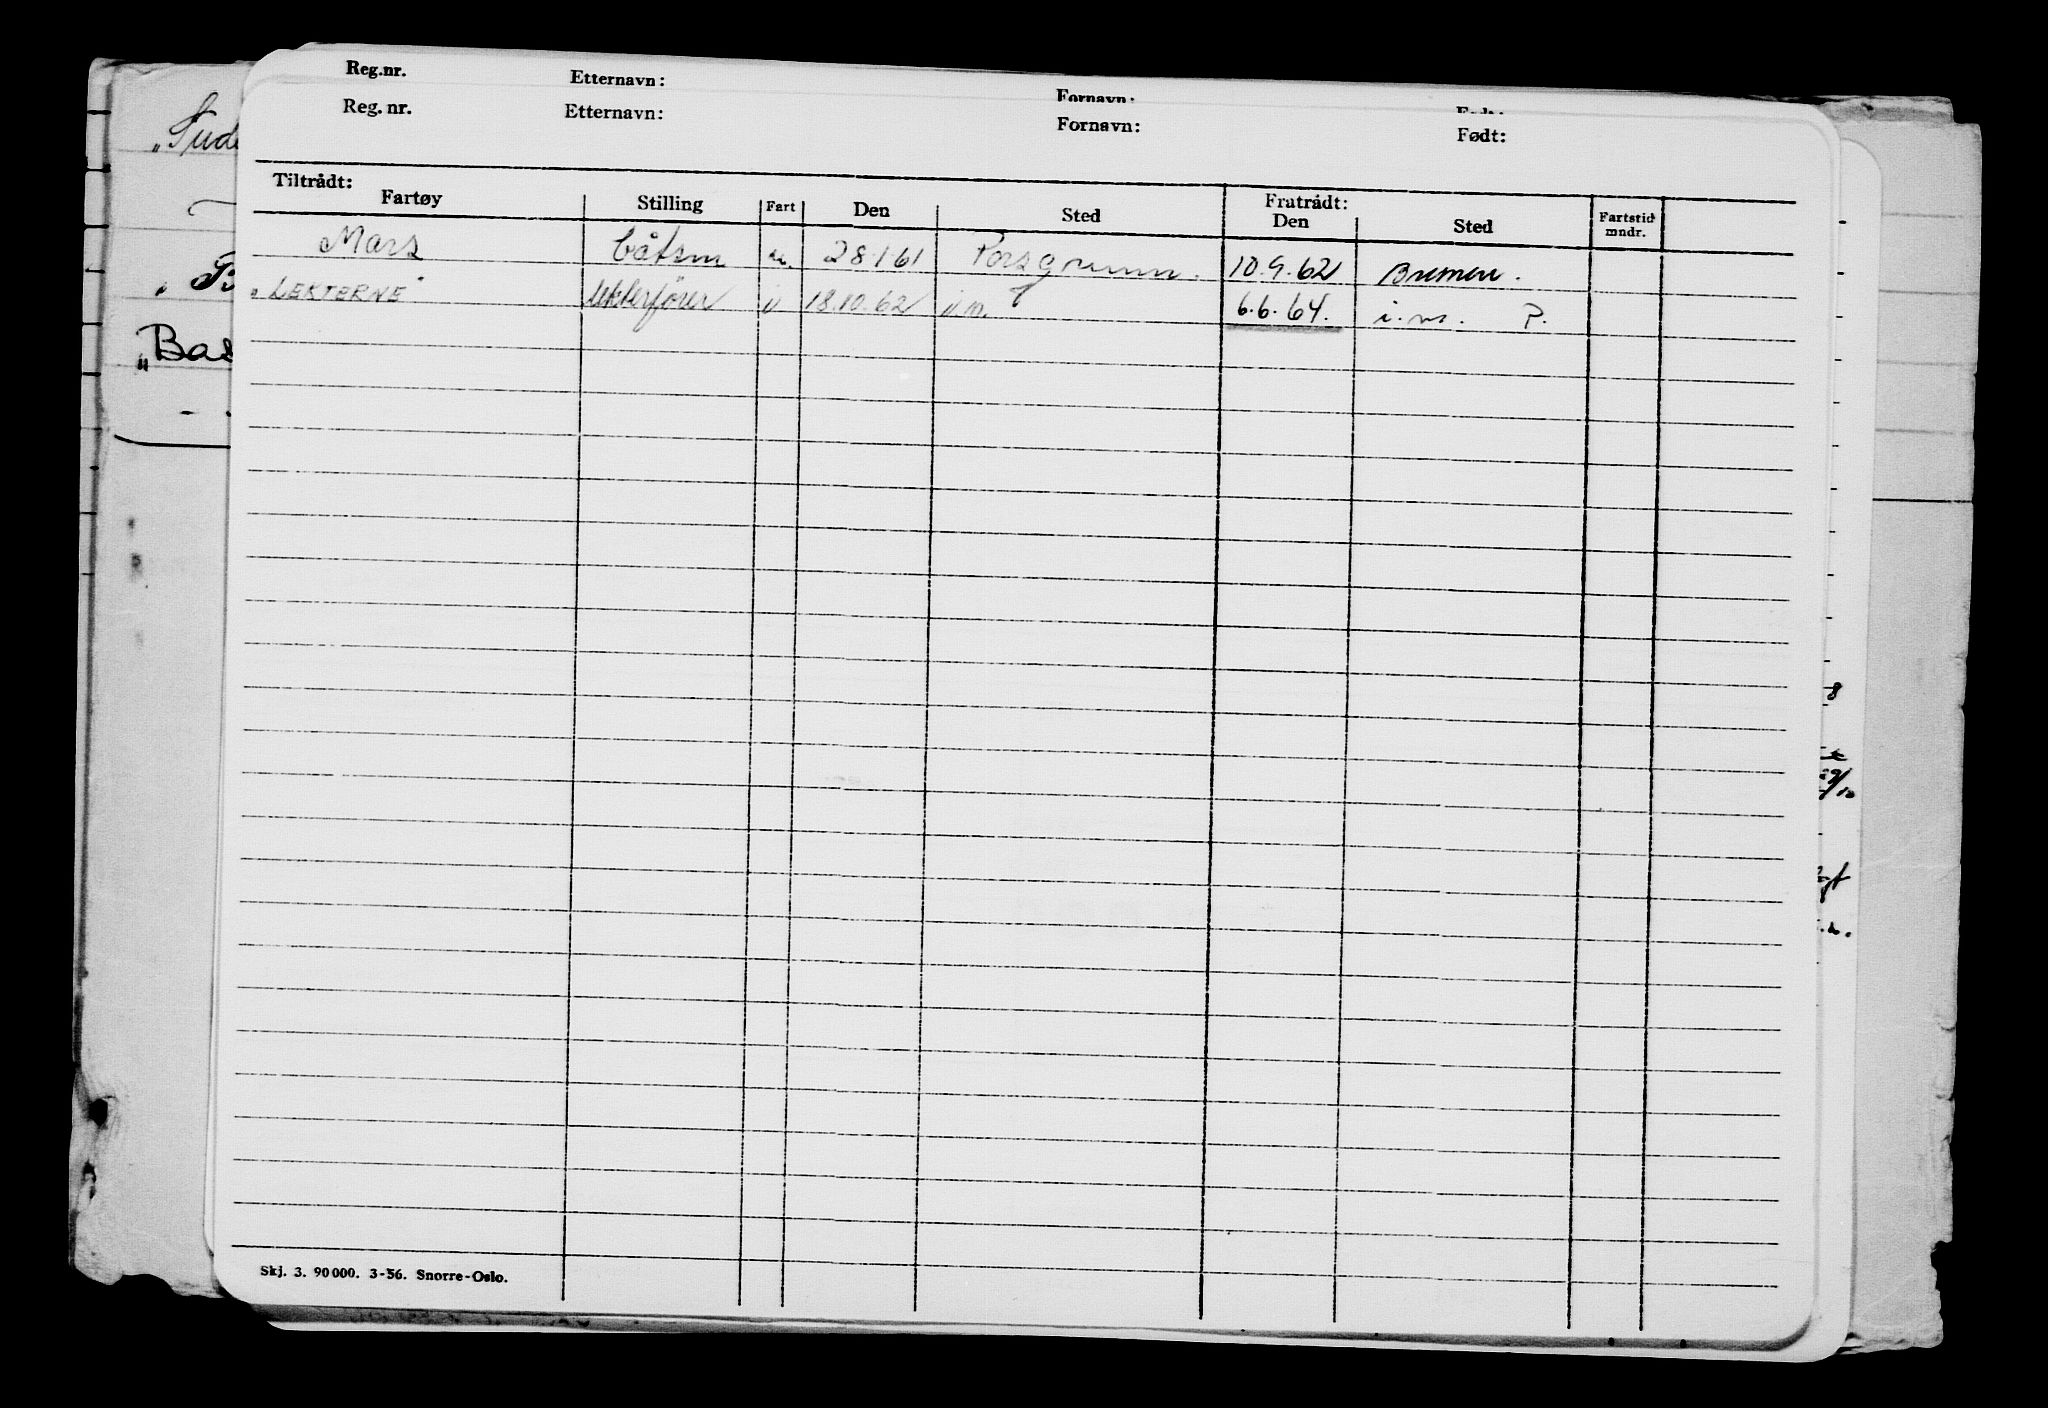 Reg.nr. Etternavn: Fornavn:
Reg. nr. Etternavn: Fornavn: Født:
Tiltrådt: Fratrådt:
Fartøy Stilling Fart Den Sted Den Sted Fartstid mndr.
Mars båtsm u. 28.1.61 Porsgrunn. 10.9.62 Bremen.
"LEKTERNE" lekterfører i 18.10.62 i.m. 6.6.64. i.m. P.
Skj. 3. 90 000. 3-56. Snorre-Oslo.